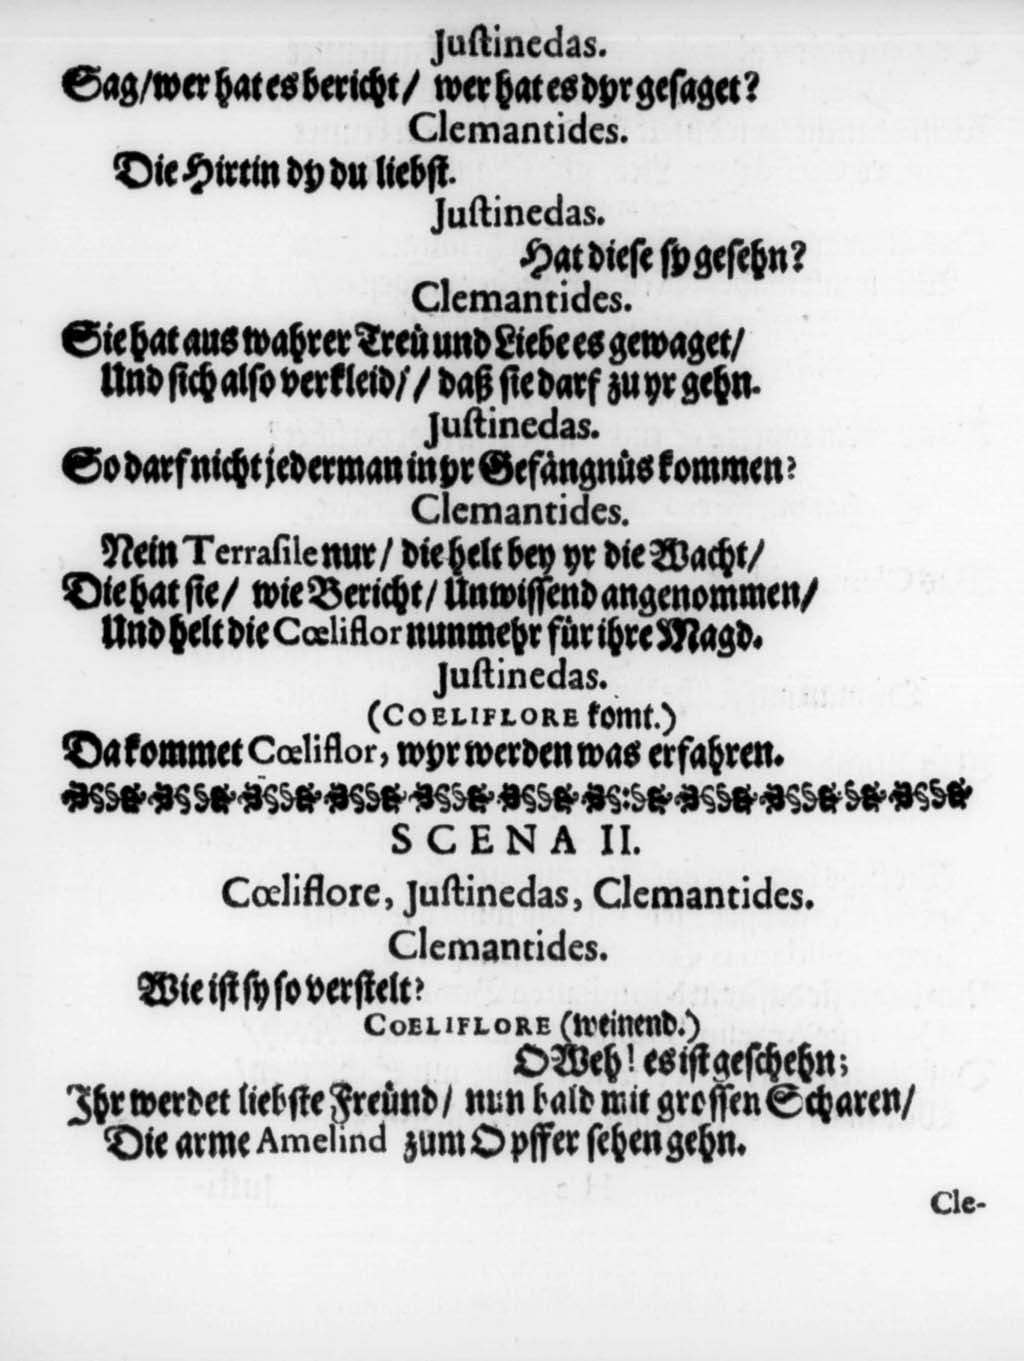 Juſtinedas.
Sag/wer hat es bericht/ wer hat es dyr geſaget?
Clemantides.
Die Hirtin dy du liebſt.
Juſtinedas.
Hat dieſe ſy geſehn?
Clemantides.
Sie hat aus wahrer Treü und Liebe es gewaget/
Und ſich alſo verkleid// daß ſie darf zu yr gehn.
Juſtinedas.
So darf nicht jederman in yr Gefängnüs kommen?
Clemantides.
Nein Terraſile nur/ die helt bey yr die Wacht/
Die hat ſie/ wie Bericht/ Unwiſſend angenommen/
Und helt die Cœliflor nunmehr für ihre Magd.
Juſtinedas.
(COELIFLORE komt.)
Da kommet Cœliflor, wyr werden was erfahren.
SCENA II.
Cœliflore, Juſtinedas, Clemantides.
Clemantides.
Wie iſt ſy ſo verſtelt?
COELIFLORE (weinend.)
O Weh! es iſt geſchehn;
Ihr werdet liebſte Freünd/ nun bald mit groſſen Scharen/
Die arme Amelind zum Opffer ſehen gehn.
Cle-